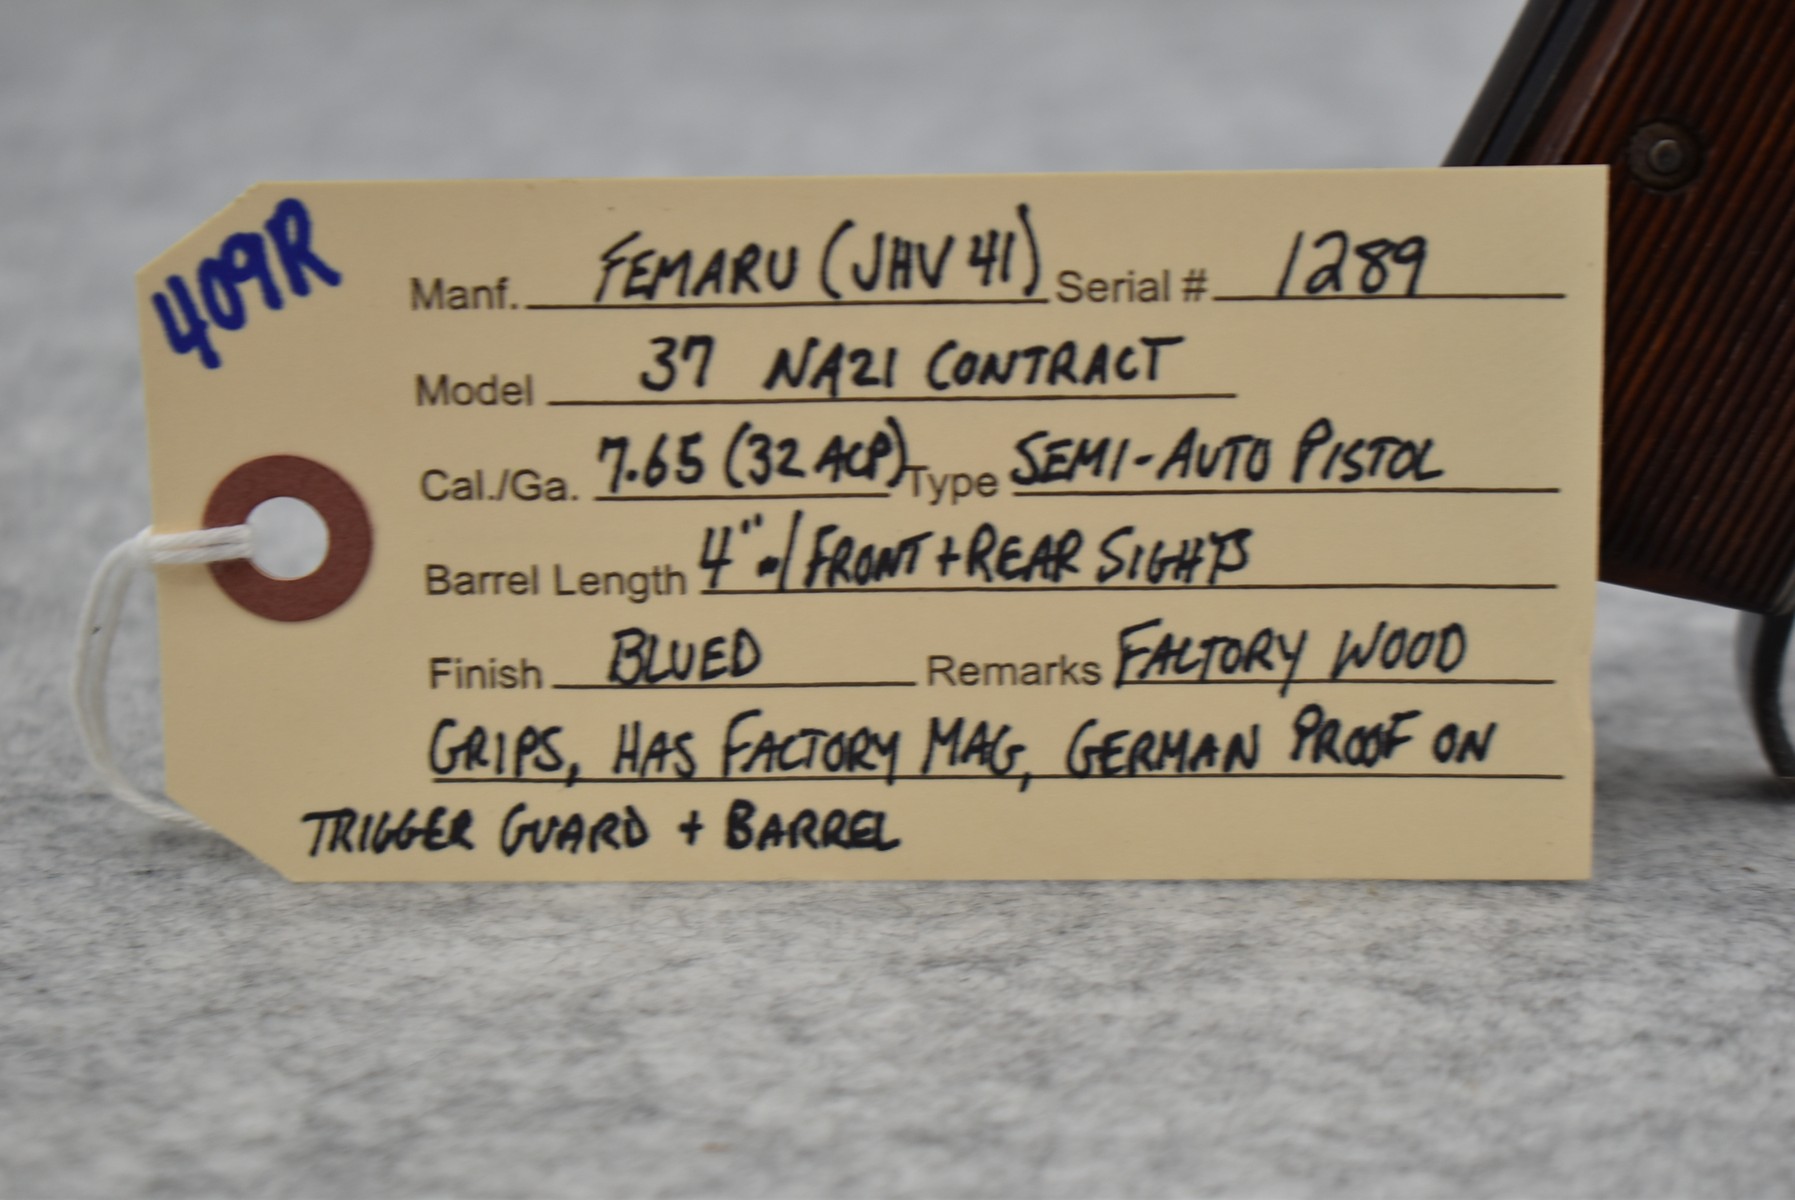 409R
Manf. FEMARU (JHV 41) Serial # 1289
Model 37 NAZI CONTRACT
Cal./Ga. 7.65 (32 ACP) Type SEMI-AUTO PISTOL
Barrel Length 4" w/ FRONT + REAR SIGHTS
Finish BLUED Remarks FACTORY WOOD
GRIPS, HAS FACTORY MAG, GERMAN PROOF ON
TRIGGER GUARD + BARREL